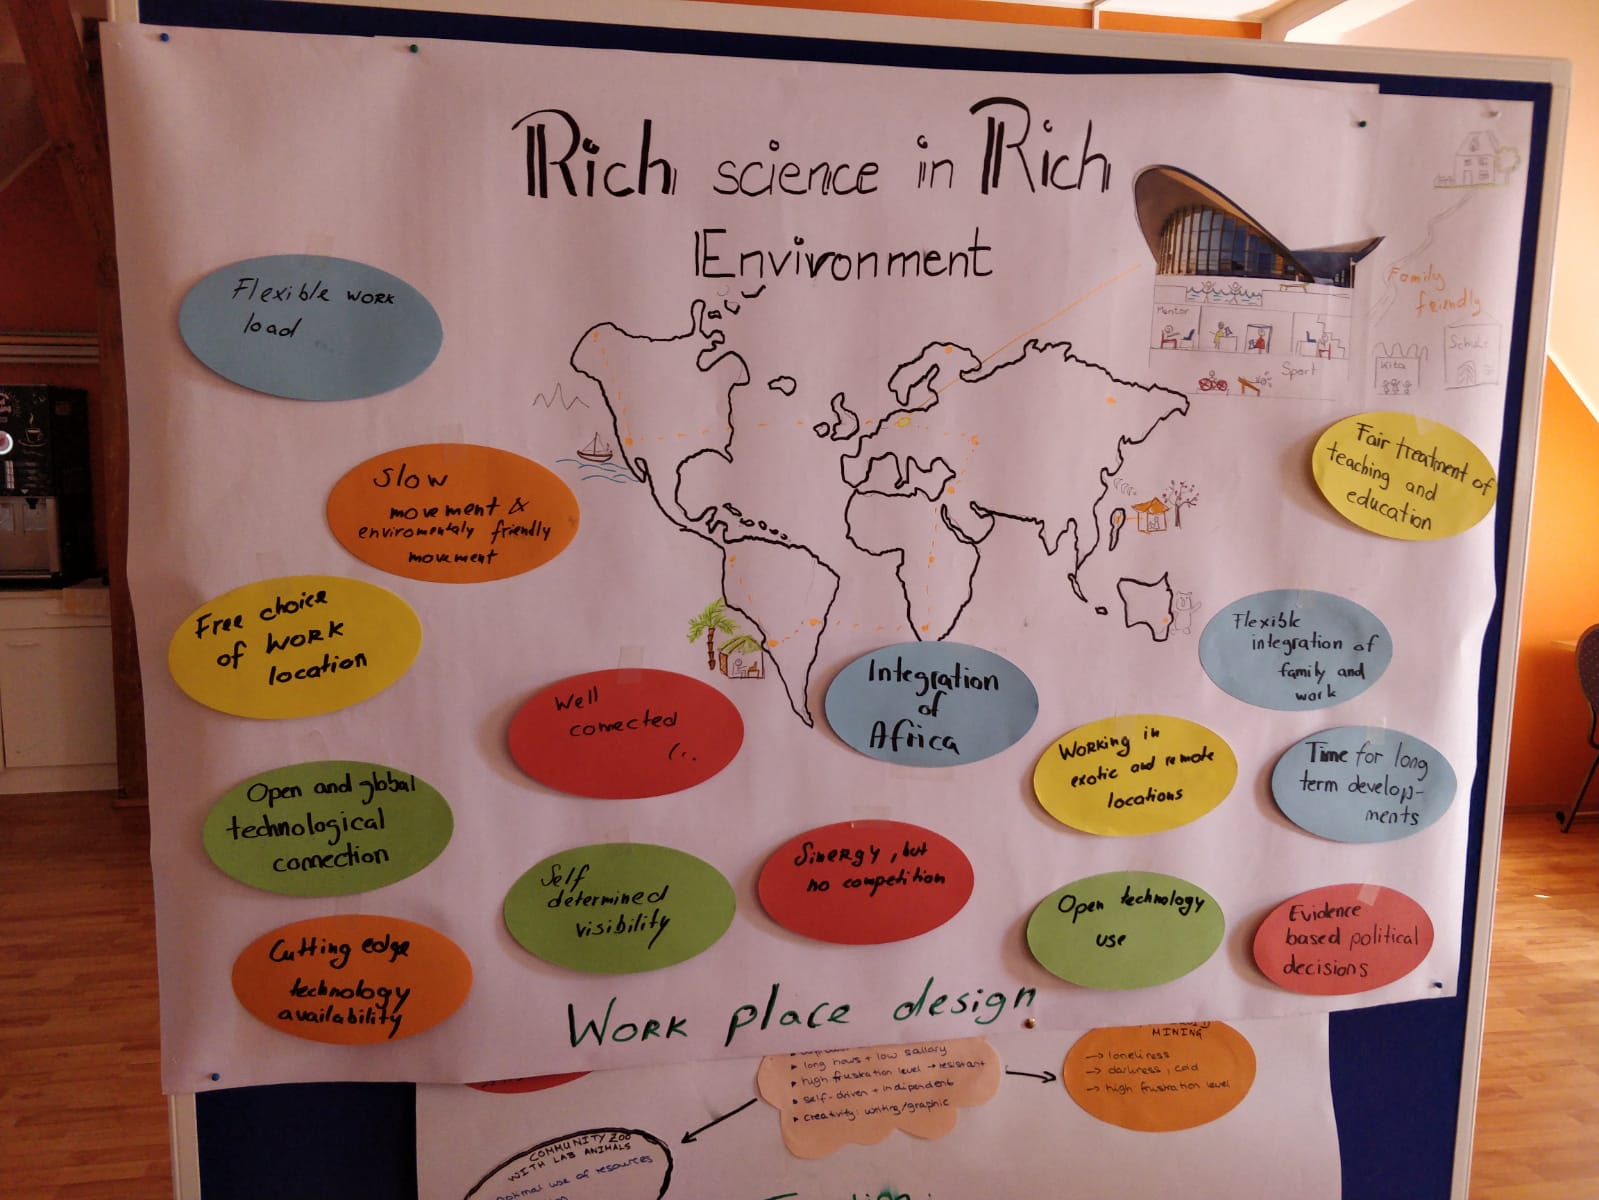 Rich science in Rich
Environment
Flexible work
load
Slow
movement &
enviromentaly friendly
movement
Free choice
of work
location
Open and global
technological
connection
Cutting edge
technology
availability
Well
connected
(..
Self
determined
visibility
Integration
of
Africa
Sinergy, but
no competition
Mentor
Sport
Family
friendly
Kita
Schule
Fair treatment of
teaching and
education
Flexible
integration of
family and
work
Working in
exotic and remote
locations
Time for long
term develop-
ments
Open technology
use
Evidence
based political
decisions
Work place design
long hours + low sallary
high frustration level → resistant
self-driven + indipendent
creativity: writing/graphic
MINING
→ loneliness
→ darkness, cold
→ high frustration level
COMMUNITY ZOO
WITH LAB ANIMALS
use of resources